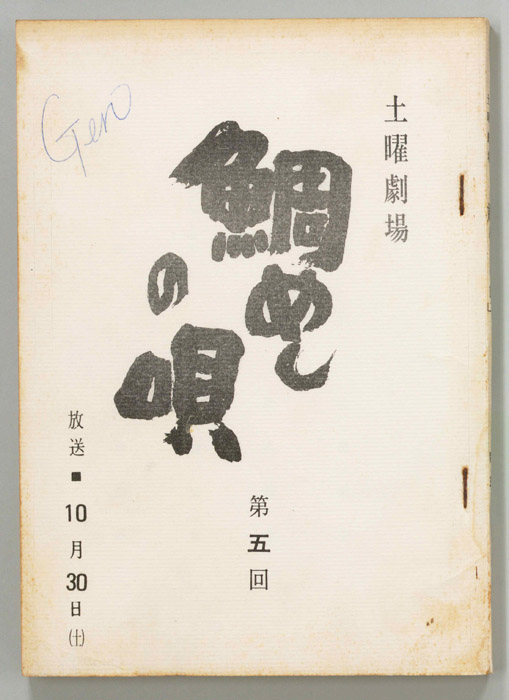 土曜劇場
鯛めし
の唄
第五回
放送■10月30日(土)
Gen